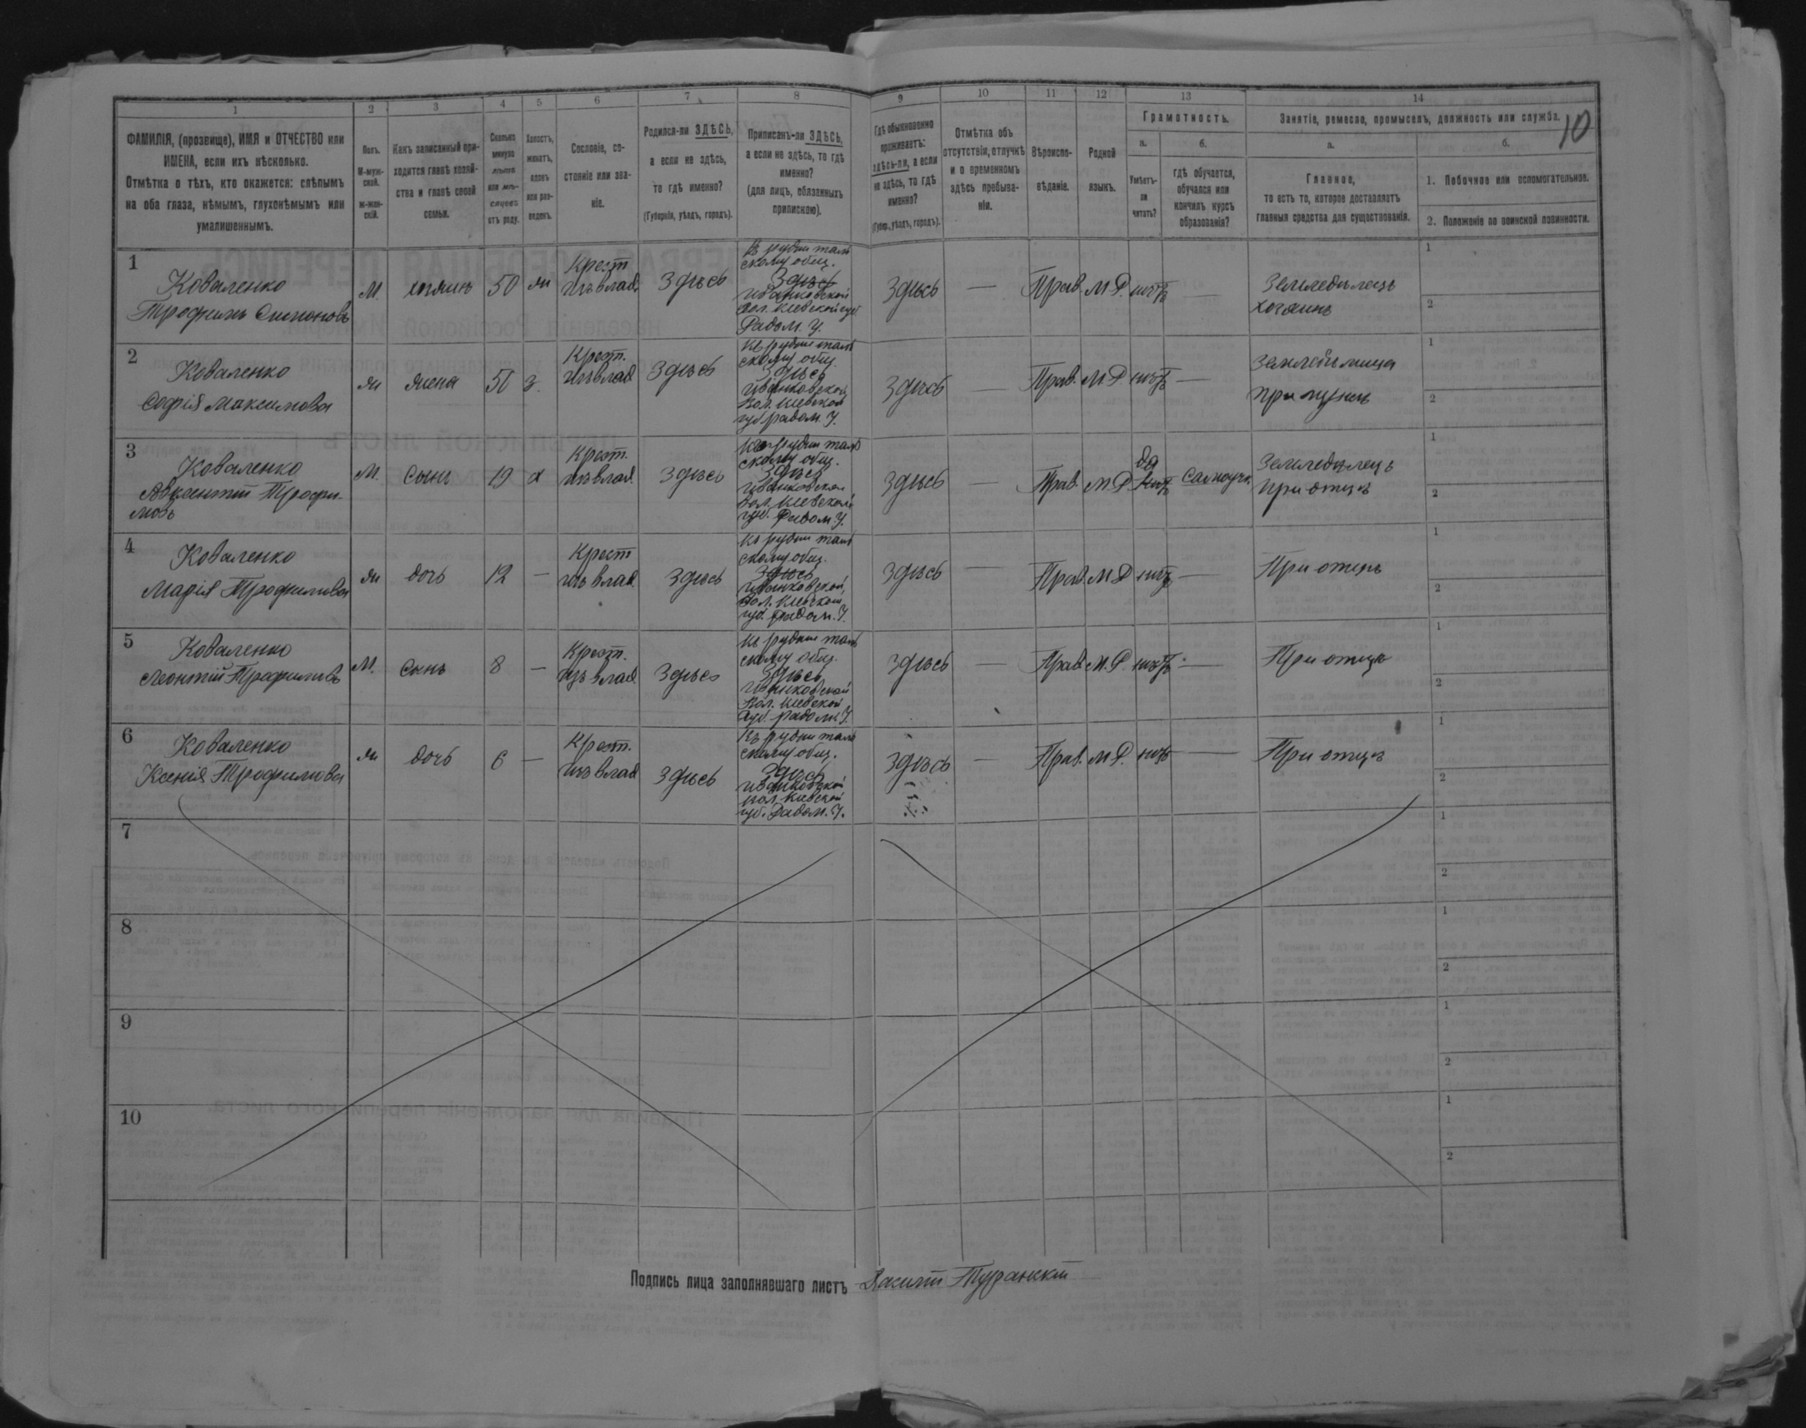 1 2 3 4 5 6 7 8 9 10 11 12 13 14
10
ФАМИЛІЯ, (прозвище), ИМЯ и ОТЧЕСТВО или
ИМЕНА, если ихъ нѣсколько.
Отмѣтка о тѣхъ, кто окажется: слѣпымъ
на оба глаза, нѣмымъ, глухонѣмымъ или
умалишеннымъ.
Полъ.
М-муж-
ской.
ж-жен-
скій.
Какъ записанный при-
ходится главѣ хозяй-
ства и главѣ своей
семьи.
Сколько
минуло
лѣтъ
или мѣ-
сяцевъ
отъ роду.
Холостъ,
женатъ,
вдовъ
или раз-
веденъ.
Сословіе, со-
стояніе или зва-
ніе.
Родился-ли ЗДѢСЬ,
а если не здѣсь,
то гдѣ именно?
(Губернія, уѣздъ, городъ).
Приписанъ-ли ЗДѢСЬ,
а если не здѣсь, то гдѣ
именно?
(для лицъ, обязанныхъ
припискою).
Гдѣ обыкновенно
проживаетъ:
здѣсь-ли, а если
не здѣсь, то гдѣ
именно?
(Губер., уѣздъ, городъ).
Отмѣтка объ
отсутствіи, отлучкѣ
и о временномъ
здѣсь пребыва-
ніи.
Вѣроиспо-
вѣданіе.
Родной
языкъ.
Грамотность.
а.
Умѣетъ-
ли
читать?
б.
гдѣ обучается,
обучался или
кончилъ курсъ
образованія?
Занятіе, ремесло, промыселъ, должность или служба.
а.
Главное,
то есть то, которое доставляетъ
главныя средства для существованія.
б.
1. Побочное или вспомогательное.
2. Положеніе по воинской повинности.
1
Коваленко
Трофимъ Симоновъ
М. хозяинъ 50 ж
Крест.
изъ влад.
Здѣсь
скому общ.
Здѣсь
Иванковской
вол. Кіевской губ.
Радом. У.
Здѣсь — Прав. М.Р. нѣтъ —
Земледѣлецъ
хозяинъ
1
2
2
Коваленко
Софія Максимова
ж жена 50 з.
Крест.
изъ влад
Здѣсь
скому общ
Здѣсь
Иванковской
вол. Кіевской
губ. Радом. У.
Здѣсь — Прав. М.Р. нѣтъ —
при мужѣ
1
2
3
Коваленко
Авксентій Трофи-
мовъ
М. сынъ 19 х
Крест.
изъ влад.
Здѣсь
скому общ.
Здѣсь
Иванковской
вол. Кіевской
губ. Радом У.
Здѣсь — Прав. М.Р.
да
нѣтъ
самоучк.
Земледѣлецъ
при отцѣ
1
2
4
Коваленко
Марія Трофимова
ж дочь 12 —
Крест
изъ влад.
Здѣсь
скому общ.
Здѣсь
Иванковской,
вол. Кіевской
губ. Радом. У.
Здѣсь — Прав. М.Р нѣтъ —
При отцѣ
1
2
5
Коваленко
Леонтій Трофимовъ
М. сынъ 8 —
Крест.
изъ влад
Здѣсь
скому общ.
Здѣсь
Иванковской
вол. Кіевской
губ. Радом. У.
Здѣсь — Прав. М.Р. нѣтъ. —
При отцѣ
1
2
6
Коваленко
Ксенія Трофимова
ж дочь 6 —
Крест.
изъ влад
Здѣсь
скому общ.
Здѣсь
Иванковской
вол. Кіевской
губ. Радом. У.
Здѣсь — Прав. М.Р. нѣтъ —
При отцѣ
1
2
7
1
2
8
1
2
9
1
2
10
1
2
Подпись лица заполнявшаго листъ